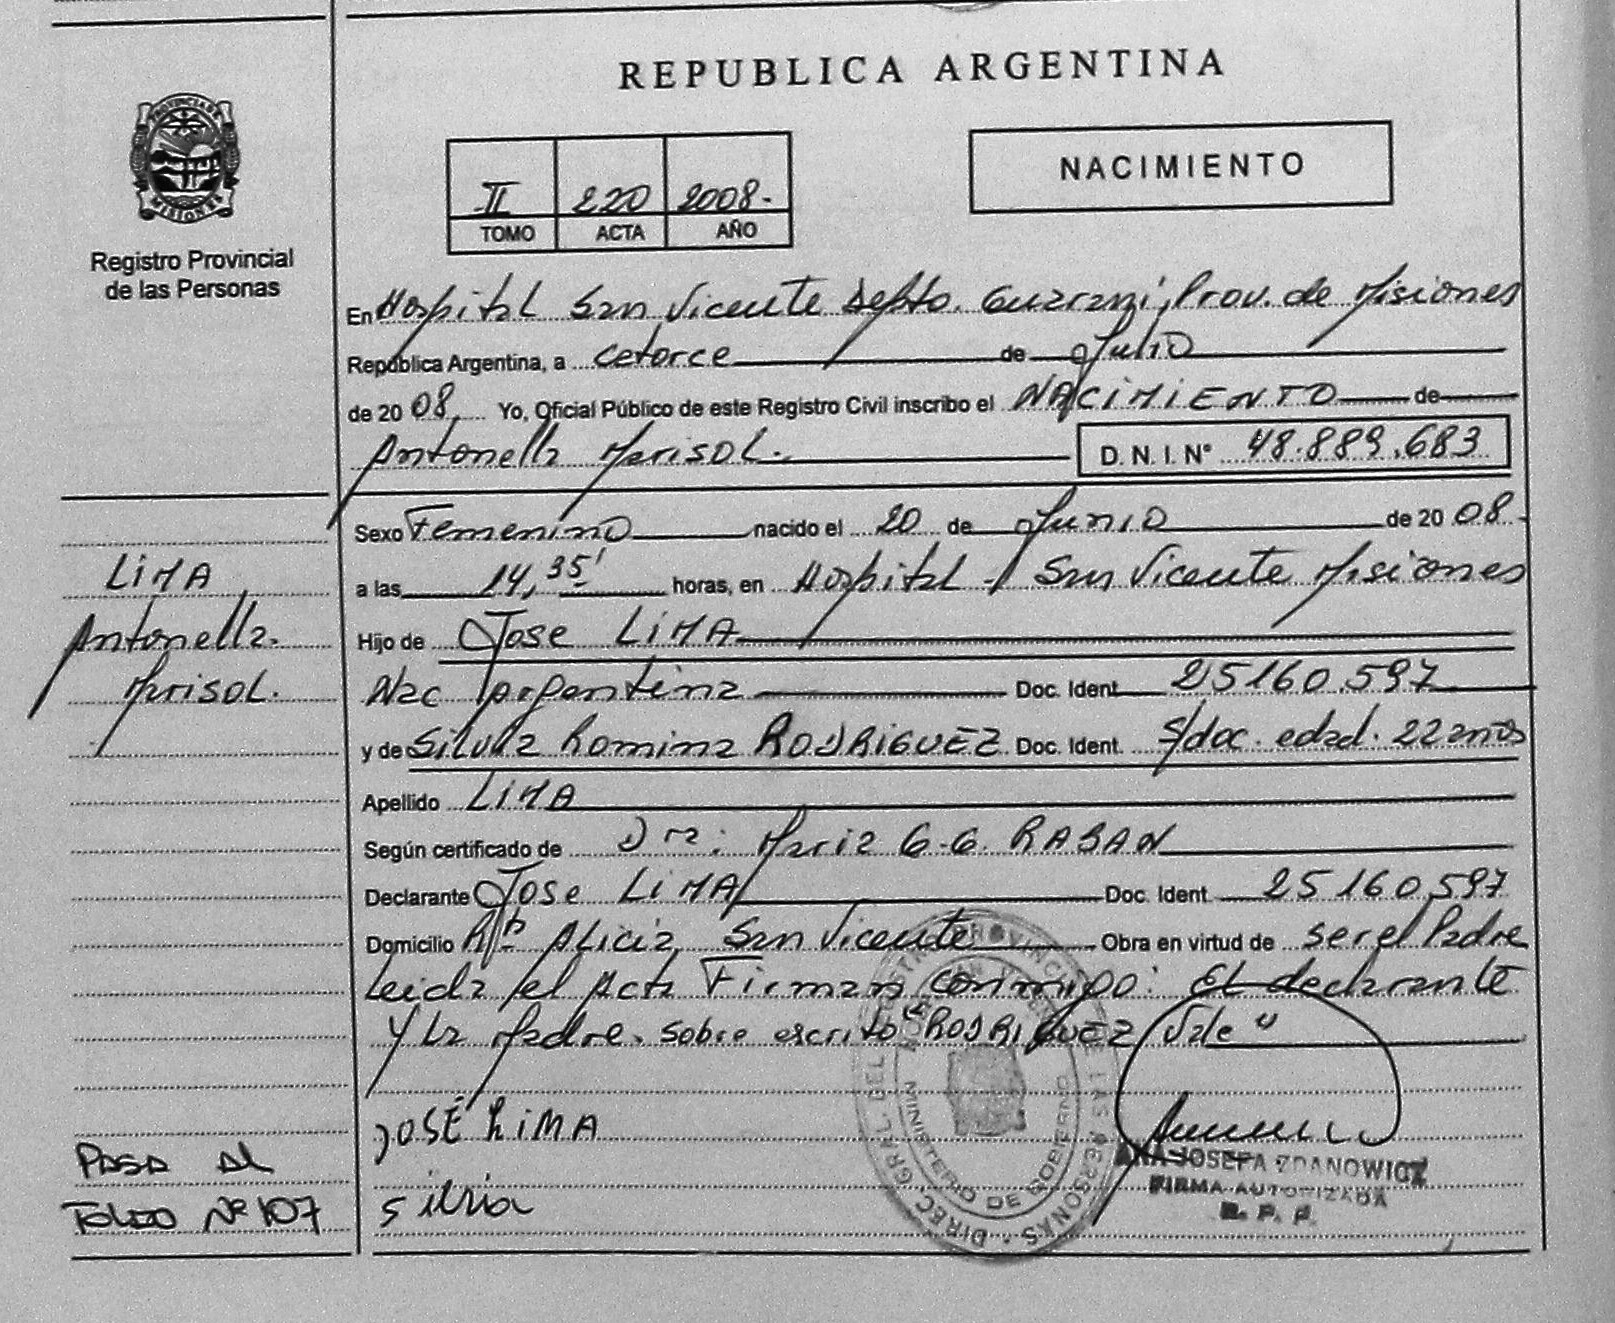 REPUBLICA ARGENTINA
PROVINCIA DE
MISIONES
Registro Provincial
de las Personas
II 220 2008.
TOMO ACTA AÑO
NACIMIENTO
En Hospital San Vicente Depto. Guaraní, Prov. de Misiones
República Argentina, a catorce de Julio
de 20 08, Yo, Oficial Público de este Registro Civil inscribo el NACIMIENTO de
Antonella Marisol.
D. N. I. N° 48.889.683
Sexo Femenino nacido el 20 de Junio de 20 08.
a las 14,35' horas, en Hospital - San Vicente Misiones
Hijo de Jose LIMA
Nac Argentina Doc. Ident. 25160.597
y de Silvia Romina RODRIGUEZ Doc. Ident. S/doc. edad. 22 años
Apellido LIMA
Según certificado de Dra: Maria G.G. RABAN
Declarante Jose LIMA Doc. Ident. 25160597
Domicilio Alicia San Vicente Obra en virtud de ser el Padre
Leida el Acta Firman conmigo: El declarante
y la Madre. Sobre escrito "RODRIGUEZ Vale"
LIMA
Antonella
Marisol.
JOSÉ LIMA
silvia
PASA AL
TOLDO Nº 107
DIREC. GRAL. DEL REGISTRO PROVINCIAL DE LAS PERSONAS
MINISTERIO DE GOBIERNO
ANA JOSEFA ZDANOWICZ
FIRMA AUTORIZADA
R. P. P.